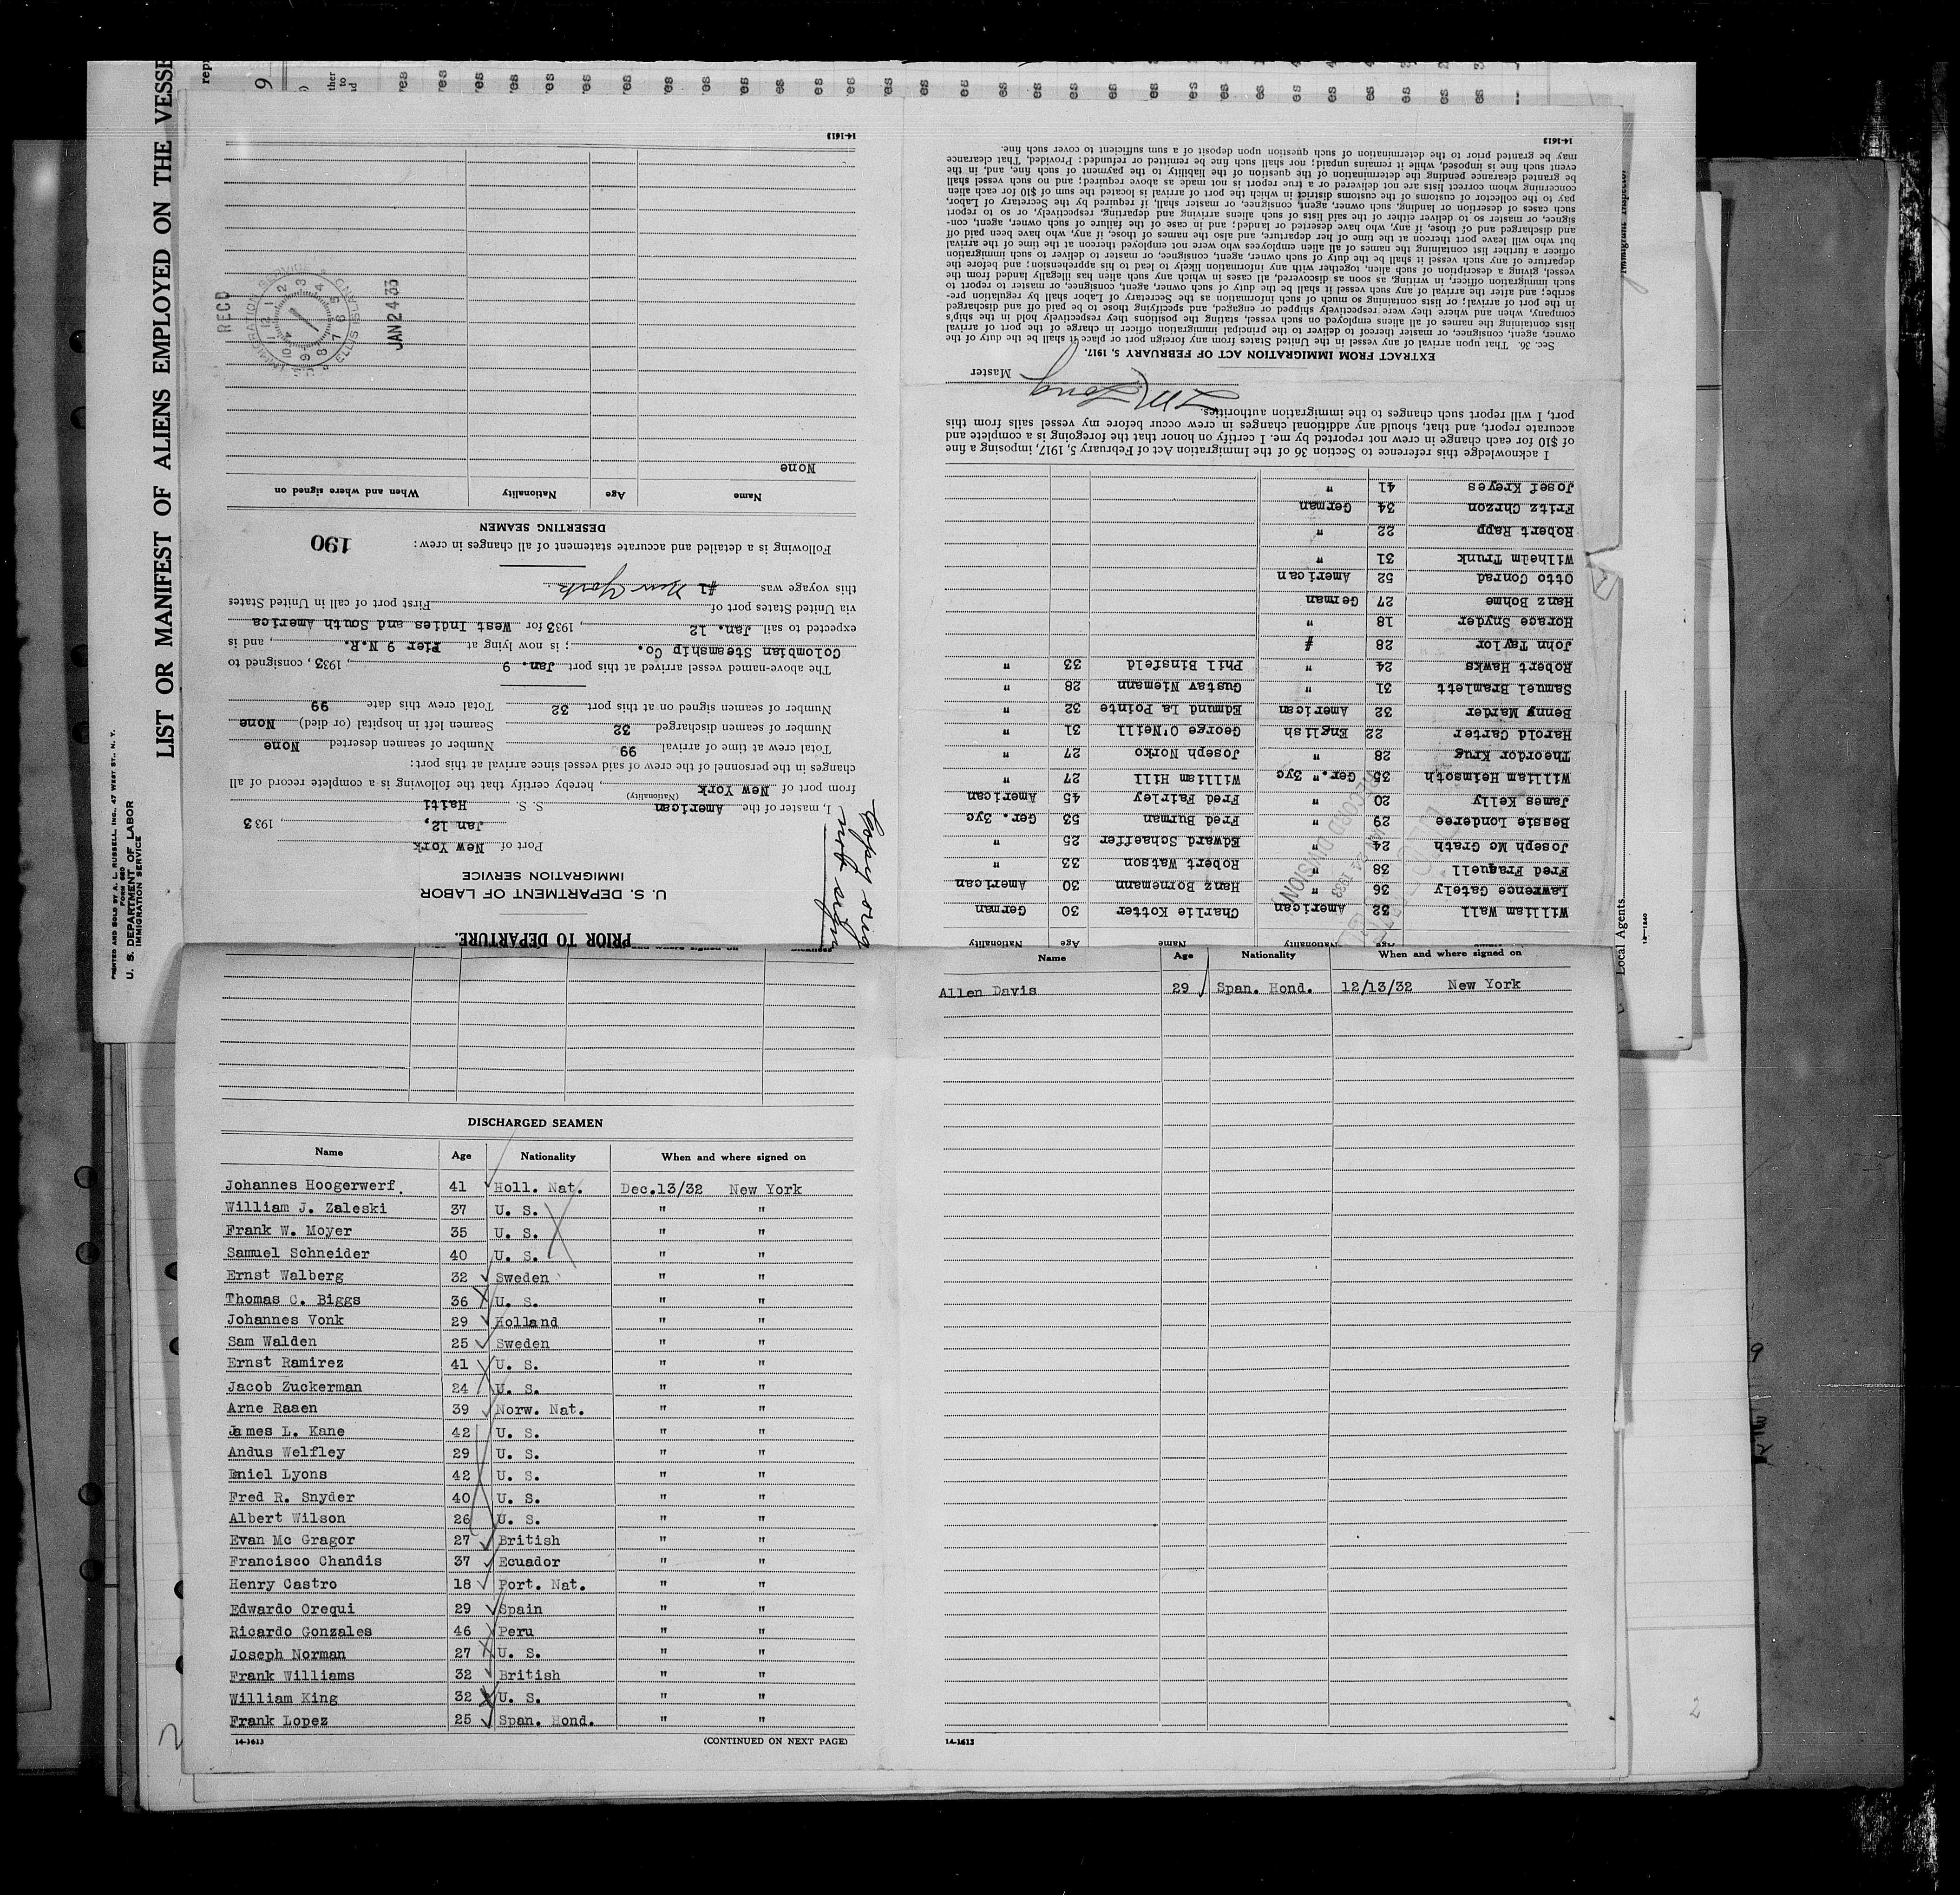 LIST OR MANIFEST OF ALIENS EMPLOYED ON THE VESSE
PRINTED AND SOLD BY A. L. RUSSELL, INC., 47 WEST ST., N. Y.
FORM 680
U. S. DEPARTMENT OF LABOR
IMMIGRATION SERVICE
PRIOR TO DEPARTURE.
U. S. DEPARTMENT OF LABOR
IMMIGRATION SERVICE
Copy orig
not sign
Port of New York
Jan 12, 1933
I, master of the American S. S. Haiti
(Nationality)
from port of New York, hereby certify that the following is a complete record of all
changes in the personnel of the crew of said vessel since arrival at this port:
Total crew at time of arrival 99 Number of seamen deserted None
Number of seamen discharged 32 Seamen left in hospital (or died) None
Number of seamen signed on at this port 32 Total crew this date 99
The above-named vessel arrived at this port Jan. 9, 1933, consigned to
Colombian Steamship Co.; is now lying at Pier 9 N.R., and is
expected to sail Jan. 12, 1933 for West Indies and South America
via United States port of First port of call in United States
this voyage was New York
190
Following is a detailed and accurate statement of all changes in crew:
DESERTING SEAMEN
Name Age Nationality When and where signed on
None
RECD
U. S. IMMIGRATION SERVICE ELLIS ISLAND
JAN 24 33
14-1613
Name Age Nationality Name Age Nationality
William Wall 32 American Charlie Kotter 30 German
Lawrence Gately 36 " Hanz Bornemann 30 American
Fred Fraquell 38 " Robert Watson 33 "
Joseph Mc Grath 24 " Edward Schaeffer 25 "
Bessie Londeree 29 " Fred Burman 53 Ger. 3yc
James Kelly 20 " Fred Fairley 45 American
William Heimsoth 35 Ger. " 3yc William Hill 27 "
Theordor Krug 28 " Joseph Norko 27 "
Harold Carter 22 English George O'Neill 31 "
Benny Marder 32 American Edmund La Pointe 32 "
Samuel Bramlett 31 " Gustav Niemann 28 "
Robert Hawks 24 " Phil Binsfeld 33 "
John Taylor 28 "
Horace Snyder 18 "
Hanz Bohme 27 German
Otto Conrad 52 American
Wilhelm Trunk 31 "
Robert Rapp 22 "
Fritz Chrzon 34 German
Josef Kreyes 41 "
RECORD DIVISION
JAN 24 1933
I acknowledge this reference to Section 36 of the Immigration Act of February 5, 1917, imposing a fine
of $10 for each change in crew not reported by me. I certify on honor that the foregoing is a complete and
accurate report, and that, should any additional changes in crew occur before my vessel sails from this
port, I will report such changes to the immigration authorities.
Master
EXTRACT FROM IMMIGRATION ACT OF FEBRUARY 5, 1917.
Sec. 36. That upon arrival of any vessel in the United States from any foreign port or place it shall be the duty of the
owner, agent, consignee, or master thereof to deliver to the principal immigration officer in charge of the port of arrival
lists containing the names of all aliens employed on such vessel, stating the positions they respectively hold in the ship's
company, when and where they were respectively shipped or engaged, and specifying those to be paid off and discharged
in the port of arrival; or lists containing so much of such information as the Secretary of Labor shall by regulation pre-
scribe; and after the arrival of any such vessel it shall be the duty of such owner, agent, consignee, or master to report to
such immigration officer, in writing, as soon as discovered, all cases in which any such alien has illegally landed from the
vessel, giving a description of such alien, together with any information likely to lead to his apprehension; and before the
departure of any such vessel it shall be the duty of such owner, agent, consignee, or master to deliver to such immigration
officer a further list containing the names of all alien employees who were not employed thereon at the time of the arrival
but who will leave port thereon at the time of her departure, and also the names of those, if any, who have been paid off
and discharged and of those, if any, who have deserted or landed; and in case of the failure of such owner, agent, con-
signee, or master so to deliver either of the said lists of such aliens arriving and departing, respectively, or so to report
such cases of desertion or landing, such owner, agent, consignee, or master shall, if required by the Secretary of Labor,
pay to the collector of customs of the customs district in which the port of arrival is located the sum of $10 for each alien
concerning whom correct lists are not delivered or a true report is not made as above required; and no such vessel shall
be granted clearance pending the determination of the question of the liability to the payment of such fine, and, in the
event such fine is imposed, while it remains unpaid; nor shall such fine be remitted or refunded: Provided, That clearance
may be granted prior to the determination of such question upon deposit of a sum sufficient to cover such fine.
14-1613
Immigrant Inspector
Local Agents.
14-1240
DISCHARGED SEAMEN
Name Age Nationality When and where signed on
Johannes Hoogerwerf. 41 Holl. Nat. Dec.13/32 New York
William J. Zaleski 37 U. S. " "
Frank W. Moyer 35 U. S. " "
Samuel Schneider 40 U. S. " "
Ernst Walberg 32 Sweden " "
Thomas C. Biggs 36 U. S. " "
Johannes Vonk 29 Holland " "
Sam Walden 25 Sweden " "
Ernst Ramirez 41 U. S. " "
Jacob Zuckerman 24 U. S. " "
Arne Raaen 39 Norw. Nat. " "
James L. Kane 42 U. S. " "
Andus Welfley 29 U. S. " "
Daniel Lyons 42 U. S. " "
Fred R. Snyder 40 U. S. " "
Albert Wilson 26 U. S. " "
Evan Mc Gragor 27 British " "
Francisco Chandis 37 Ecuador " "
Henry Castro 18 Port. Nat. " "
Edwardo Orequi 29 Spain " "
Ricardo Gonzales 46 Peru " "
Joseph Norman 27 U. S. " "
Frank Williams 32 British " "
William King 32 U. S. " "
Frank Lopez 25 Span. Hond. " "
14-1613 (CONTINUED ON NEXT PAGE)
Name Age Nationality When and where signed on
Allen Davis 29 Span. Hond. 12/13/32 New York
14-1613
2